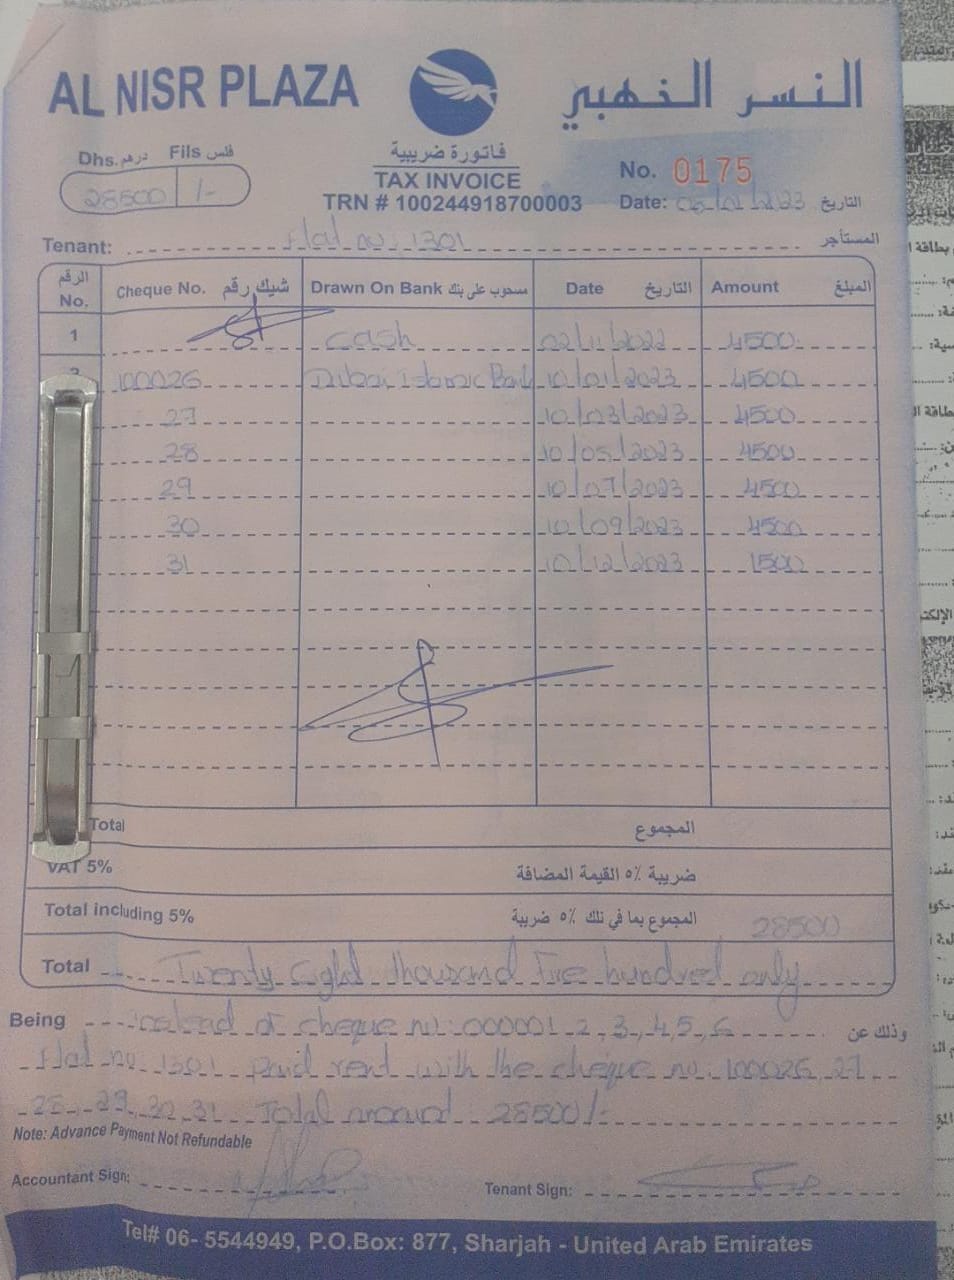 AL NISR PLAZA النسر الذهبي
Dhs. درهم Fils فلس
28500 /-
فاتورة ضريبية
TAX INVOICE
TRN # 100244918700003
No. 0175
Date: 05/01/2023 التاريخ
Tenant: Flat no: 1301 المستأجر
الرقم No. Cheque No. شيك رقم Drawn On Bank مسحوب على بنك Date التاريخ Amount المبلغ
1 Cash 02/11/2022 4500
100026 Dubai Islamic Bank 10/01/2023 4500
27 10/03/2023 4500
28 10/05/2023 4500
29 10/07/2023 4500
30 10/09/2023 4500
31 10/12/2023 1500
Total المجموع
VAT 5% ضريبة ٥٪ القيمة المضافة
Total including 5% المجموع بما في تلك ٥٪ ضريبة 28500
Total Twenty Eight thousand Five hundred only
Being instead of cheque no: 000001, 2, 3, 4, 5, 6 وذلك عن
Flat no: 1301 paid rent with the cheque no: 100026, 27
28, 29, 30, 31 Total amount 28500/-
Note: Advance Payment Not Refundable
Accountant Sign: Tenant Sign:
Tel# 06- 5544949, P.O.Box: 877, Sharjah - United Arab Emirates